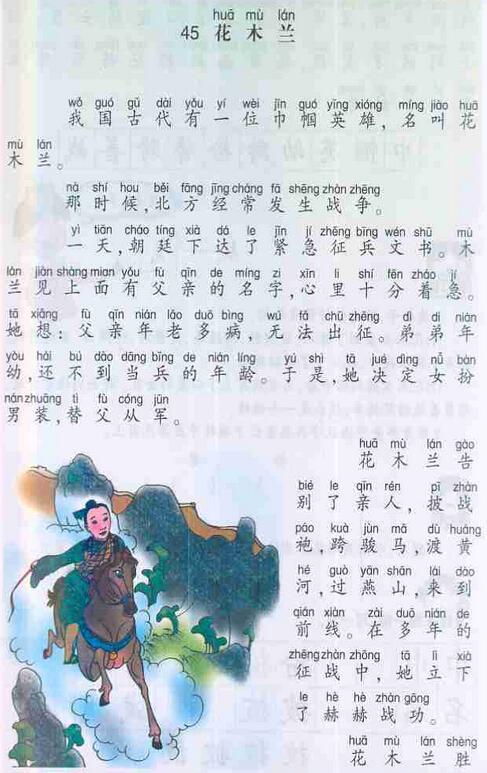 huā mù lán
45 花木兰
wǒ guó gǔ dài yǒu yí wèi jīn guó yīng xióng míng jiào huā
我国古代有一位巾帼英雄,名叫花
mù lán
木兰。
nà shí hou běi fāng jīng cháng fā shēng zhàn zhēng
那时候,北方经常发生战争。
yì tiān cháo tíng xià dá le jǐn jí zhēng bīng wén shū mù
一天,朝廷下达了紧急征兵文书。木
lán jiàn shàng mian yǒu fù qīn de míng zi xīn li shí fēn zháo jí
兰见上面有父亲的名字,心里十分着急。
tā xiǎng fù qīn nián lǎo duō bìng wú fǎ chū zhēng dì di nián
她想:父亲年老多病,无法出征。弟弟年
yòu hái bú dào dāng bīng de nián líng yú shì tā jué dìng nǚ bàn
幼,还不到当兵的年龄。于是,她决定女扮
nán zhuāng tì fù cóng jūn
男装,替父从军。
huā mù lán gào
花木兰告
bié le qīn rén pī zhàn
别了亲人,披战
páo kuà jùn mǎ dù huáng
袍,跨骏马,渡黄
hé guò yān shān lái dào
河,过燕山,来到
qián xiàn zài duō nián de
前线。在多年的
zhēng zhàn zhōng tā lì xià
征战中,她立下
le hè hè zhàn gōng
了赫赫战功。
huā mù lán shèng
花木兰胜